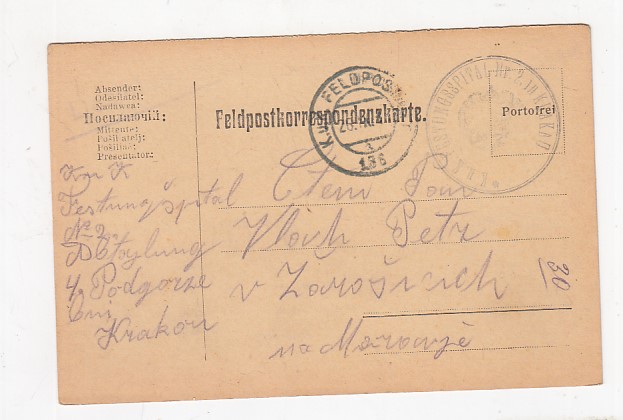 Absender:
Odesílatel:
Nadawca:
Посилаючий:
Mittente:
Pošiljatelj:
Pošiljač:
Presentator:
Feldpostkorrespondenzkarte.
K.u.K. FELDPOSTAMT
186
K.u.K. FESTUNGSSPITAL Nr. 2 IN KRAKAU
Portofrei
K u K
Festungšpital
No 2
4 Podgorze
Krakov
Ctěni Pan
Vlach Petr
v Zarošicich
na Moravje
30